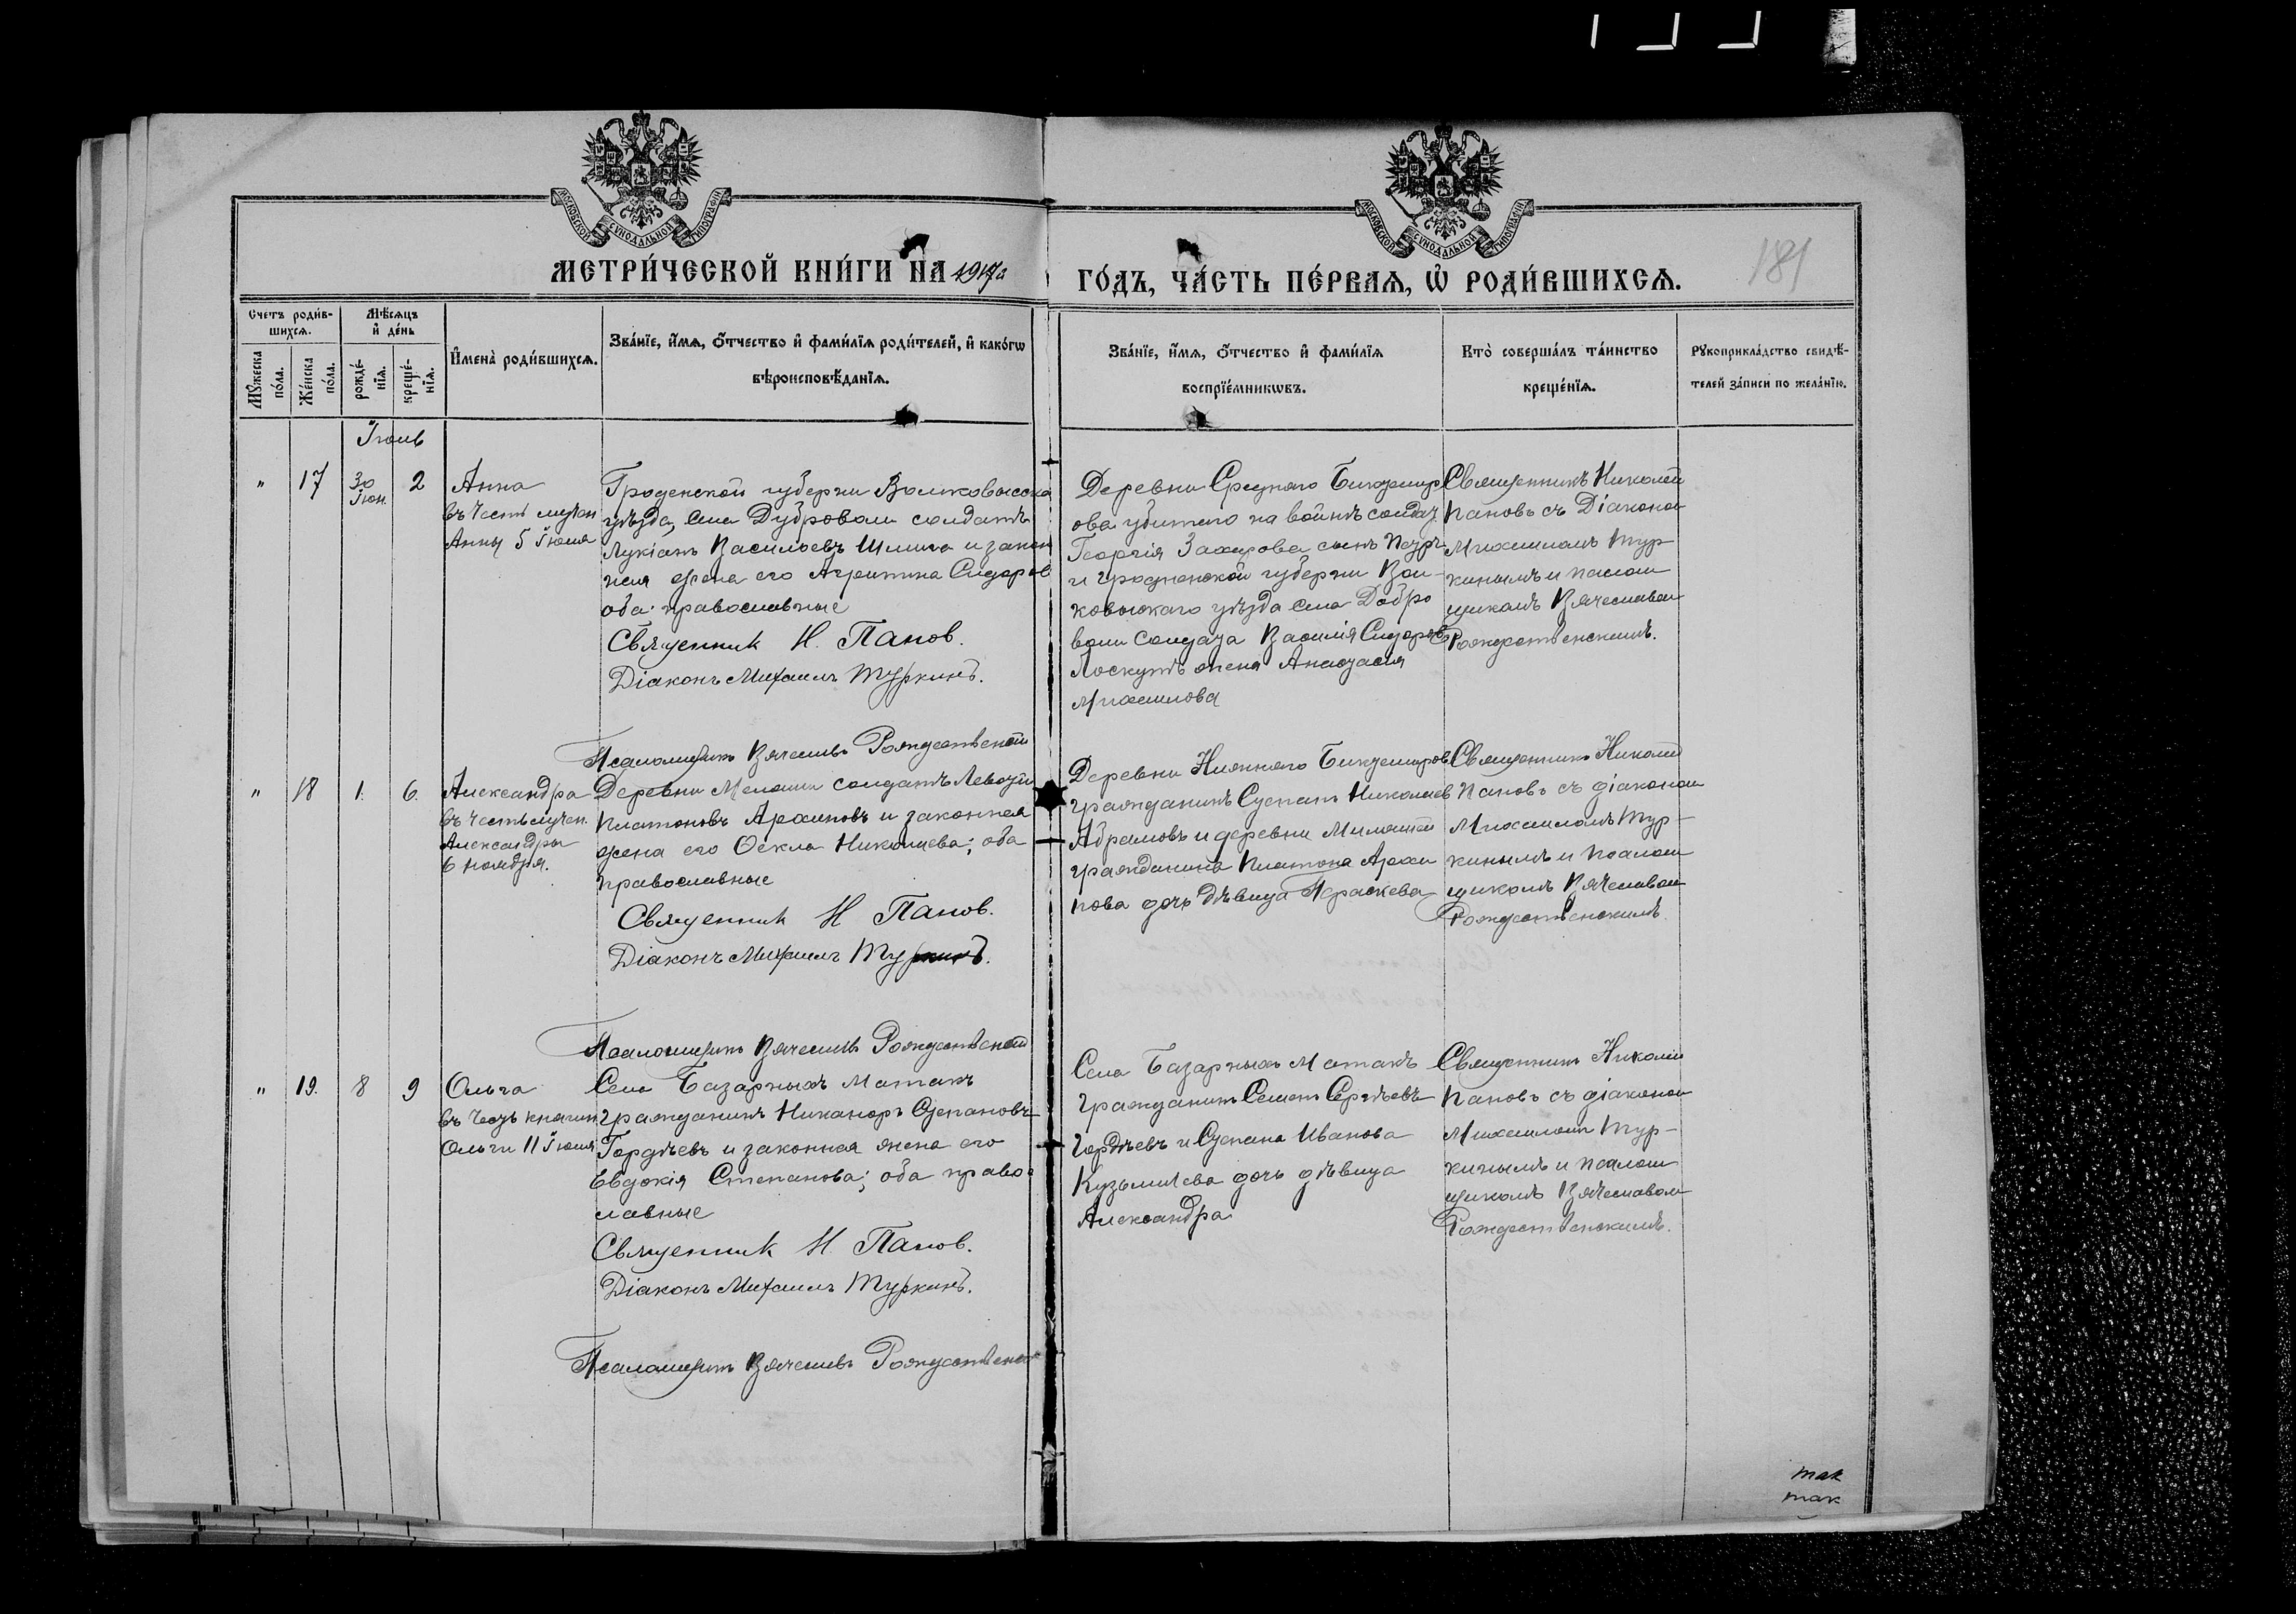 МОСКОВСКОЙ СѴНОДАЛЬНОЙ ТИПОГРАФІИ
МОСКОВСКОЙ СѴНОДАЛЬНОЙ ТИПОГРАФІИ
МЕТРИ́ЧЕСКОЙ КНИ́ГИ НА 1917 ГО́ДЪ, ЧА́СТЬ ПЕ́РВАЯ, Ѡ҆ РОДИ́ВШИХСЯ.
181
Счетъ роди́в-
шихся.
Мѣ́сяцъ
и҆ де́нь
Мꙋ́жеска по́ла.
Же́нска по́ла.
рожде́-
нїя.
креще́-
нїя.
И҆мена̀ роди́вшихся.
Зва́нїе, и҆́мя, ѻ҆́тчество и҆ фами́лїя роди́телей, и҆ како́гѡ
вѣроисповѣ́данїя.
Зва́нїе, и҆́мя, ѻ҆́тчество и҆ фами́лїя
воспрїе́мникѡвъ.
Кто̀ соверша́лъ та́инство
креще́нїя.
Рꙋкоприкла́дство свидѣ́-
телей за́писи по жела́нїю.
Іюль
" 17 30 Іюн. 2
Анна
въ честь мучен
Анны 5 Іюля
Гроденской губерни Волковысска
уѣзда, села Дубровали солдатъ
Лукіанъ Васильевъ и закон
ная жена его Агрипина Сидоров
оба православные
Священник Н. Панов.
Діаконъ Михаилъ Туркинъ.
Псаломщикъ Вячеславъ Рождественскій
Деревни Средняго Биктемир
ова убитаго на войнѣ солдат
Георгія Захарова сынъ Петръ
и гродненской губерни Вол-
ковыскаго уѣзда села Добро
воли солдата Василія Сидорова
Лоскутъ жена Анастасія
Михаилова
Священникъ Николай
Пановъ съ Діаконом
Михаиломъ Тур-
кинымъ и псалом
щикомъ Вячеславом
Рождественскимъ.
" 18 1. 6.
Александра
въ честь мучен.
Александры
6 ноября.
Деревни Мелоши солдатъ Левонтій
Платоновъ Архиповъ и законная
жена его Өекла Николаева; оба
православные
Священник Н Панов.
Діаконъ Михаилъ Туркинъ.
Псаломщикъ Вячеславъ Рождественскій
Деревни Нижняго Биктемиров
гражданинъ Степанъ Николаев
Абрамовъ и деревни
гражданина Платона Архи
пова дочь дѣвица Параскева
Священникъ Николай
Пановъ съ діаконом
Михаиломъ Тур-
кинымъ и псалом
щикомъ Вячеславом
Рождественскимъ.
" 19. 8 9
Ольга
въ честь княгин
Ольги 11 Іюля
Села Базарныхъ Матакъ
гражданинъ Никаноръ Степановъ
Гордѣевъ и законная жена его
Евдокія Степанова; оба право-
славные
Священник Н. Панов.
Діаконъ Михаилъ Туркинъ.
Псаломщикъ Вячеславъ Рождественск
Села Базарныхъ Матакъ
гражданинъ Семенъ Сергѣевъ
Гордѣевъ и Степана Иванова
Кузьмичева дочь дѣвица
Александра
Священникъ Николай
Пановъ съ діаконом
Михаиломъ Тур-
кинымъ и псалом
щикомъ Вячеславом
Рождественскимъ.